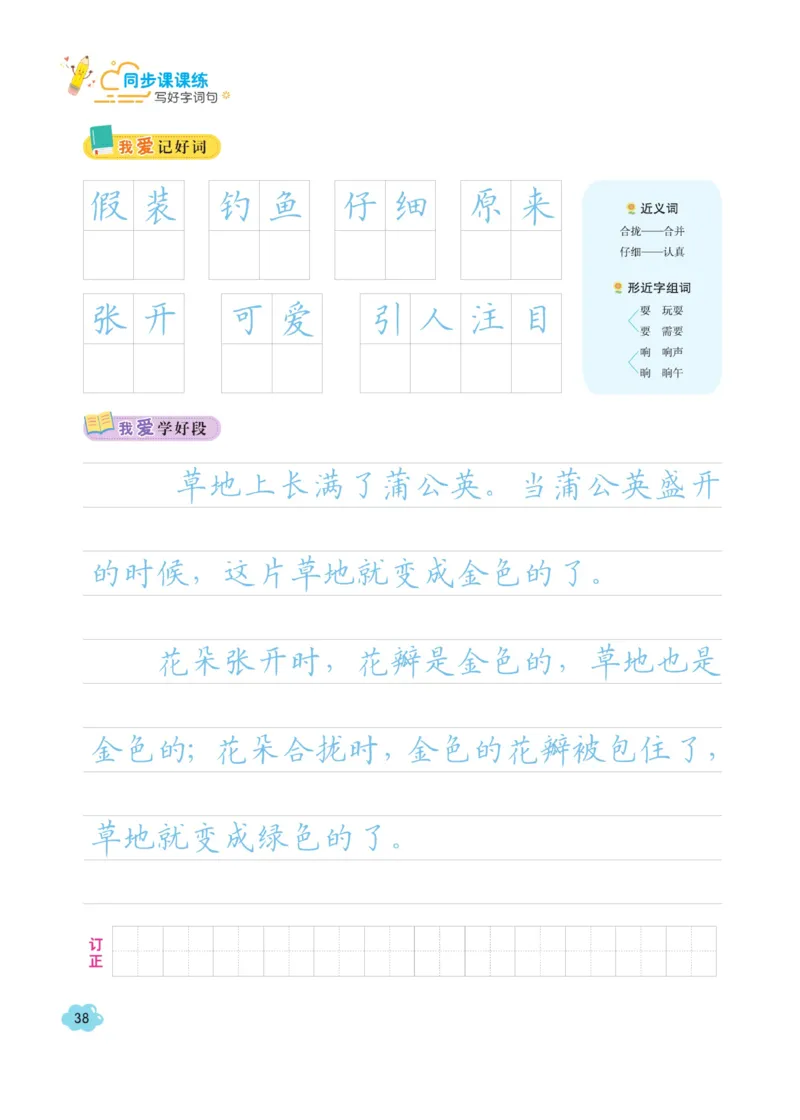 同步课课练
写好字词句
我爱记好词
假装 钓鱼 仔细 原来
张开 可爱 引人注目
近义词
合拢——合并
仔细——认真
形近字组词
耍 玩耍
要 需要
响 响声
晌 晌午
我爱学好段
草地上长满了蒲公英。当蒲公英盛开
的时候，这片草地就变成金色的了。
花朵张开时，花瓣是金色的，草地也是
金色的；花朵合拢时，金色的花瓣被包住了，
草地就变成绿色的了。
订正
38